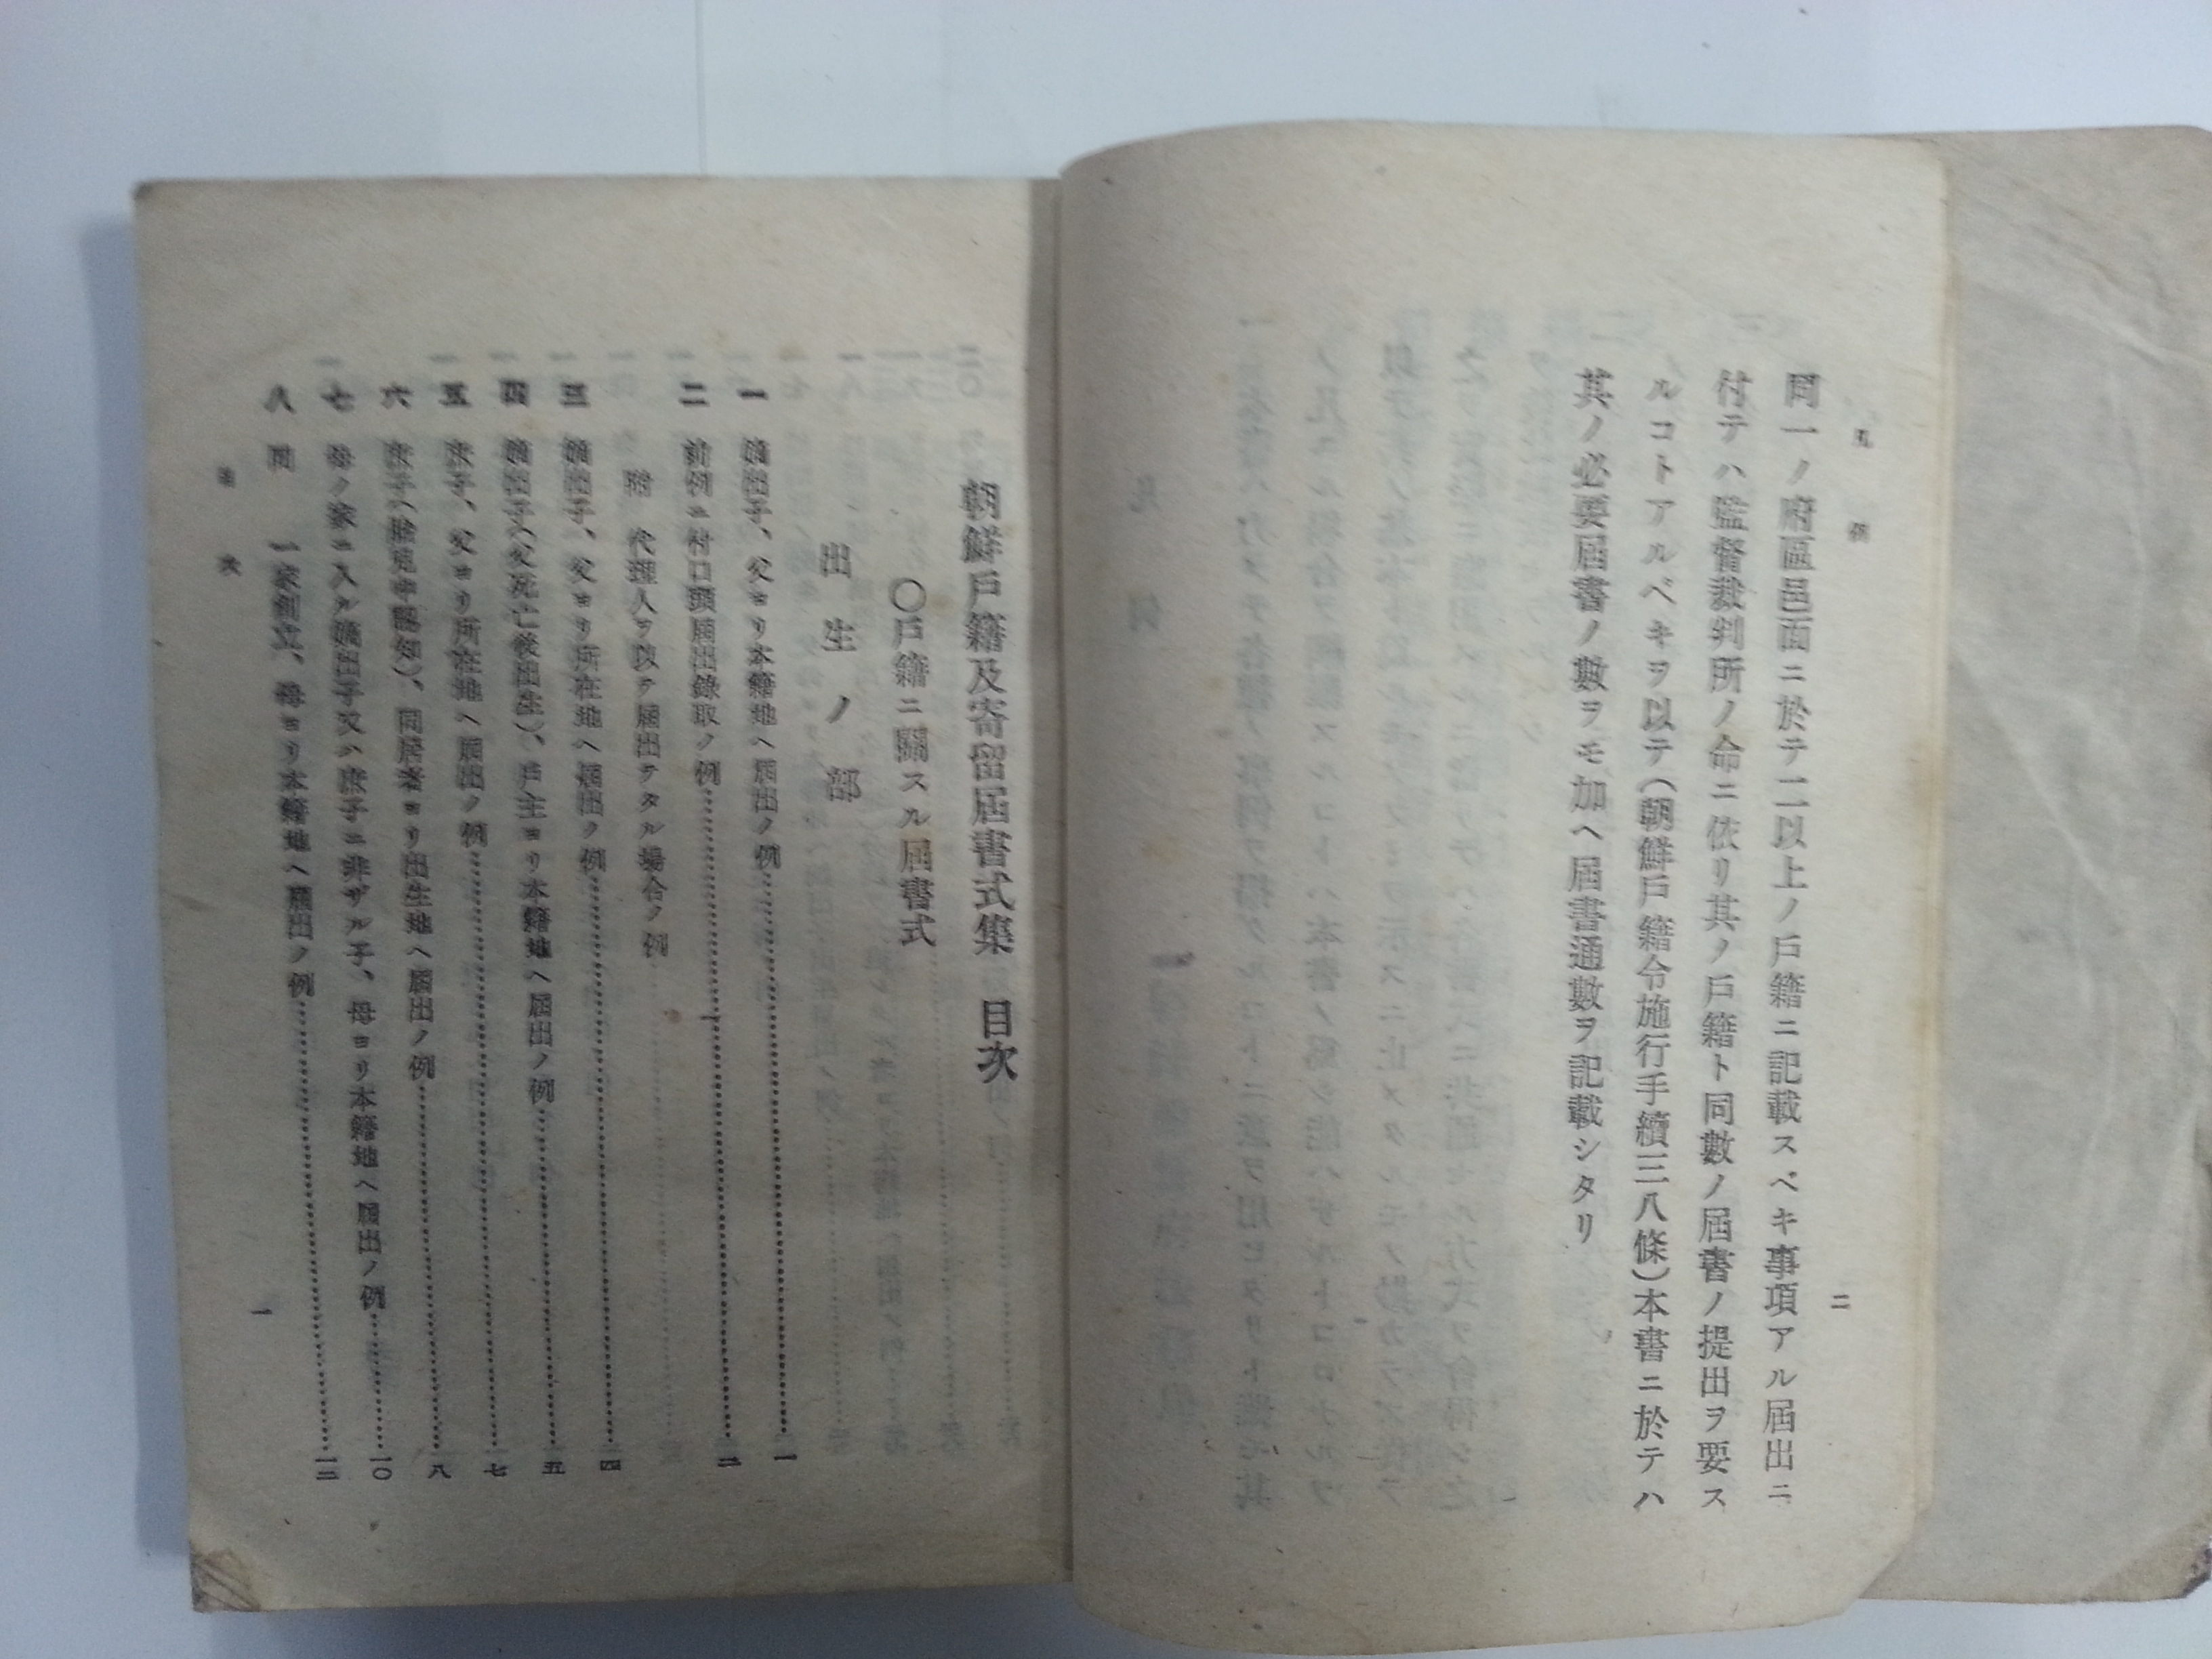 凡例
二
同一ノ府區邑面ニ於テ二以上ノ戶籍ニ記載スベキ事項アル屆出ニ
付テハ監督裁判所ノ命ニ依リ其ノ戶籍ト同數ノ屆書ノ提出ヲ要ス
ルコトアルベキヲ以テ(朝鮮戶籍令施行手續三八條)本書ニ於テハ
其ノ必要屆書ノ數ヲモ加ヘ屆書通數ヲ記載シタリ
朝鮮戶籍及寄留屆書式集 目次
〇戶籍ニ關スル屆書式
出生ノ部
一 嫡出子、父ヨリ本籍地ヘ屆出ノ例……一
二 前例ニ付口頭屆出錄取ノ例……二
附 代理人ヲ以テ屆出テタル場合ノ例……三
三 嫡出子、父ヨリ所在地ヘ屆出ノ例……四
四 嫡出子(父死亡後出生)、戶主ヨリ本籍地ヘ屆出ノ例……五
五 庶子、父ヨリ所在地ヘ屆出ノ例……七
六 庶子(胎兒中認知)、同居者ヨリ出生地ヘ屆出ノ例……八
七 母ノ家ニ入ル嫡出子又ハ庶子ニ非ザル子、母ヨリ本籍地ヘ屆出ノ例……一〇
八 同 一家創立、母ヨリ本籍地ヘ屆出ノ例……一二
目次
一